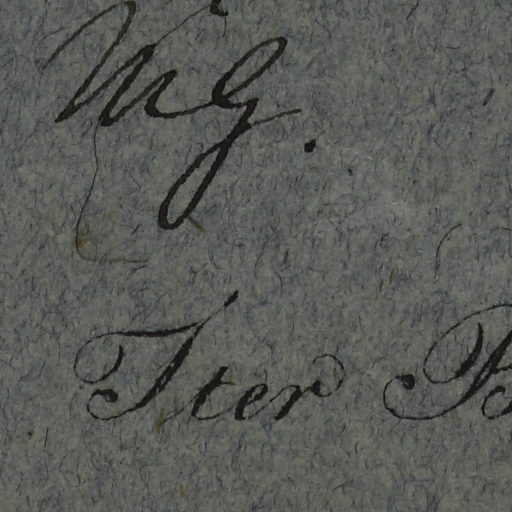 Mg.
Iter B